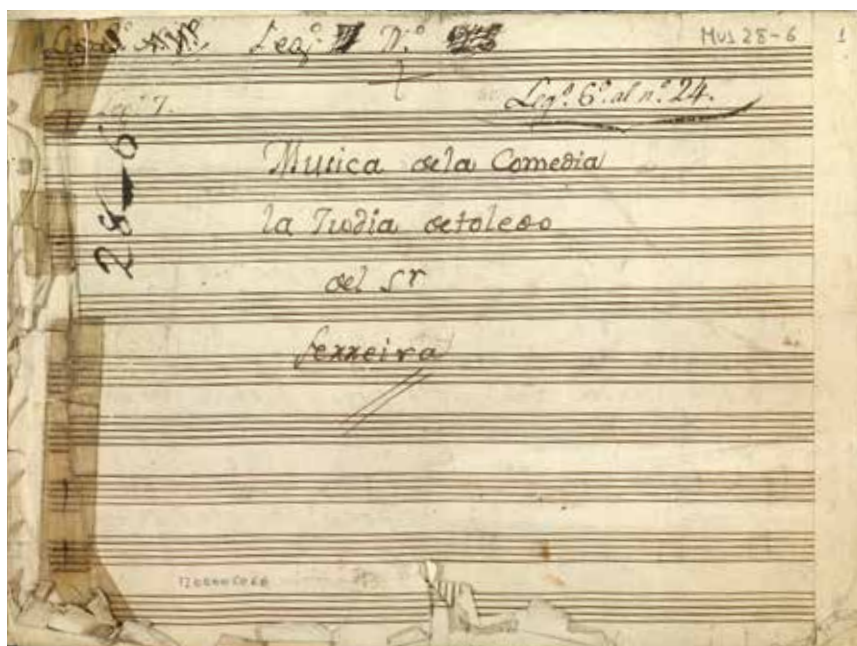 Leg.º Leg.º N.º Mus 28-6 1
Leg.º 7. Leg.º 6.º al n.º 24.
28-6
Musica dela Comedia
la Judia detoledo
del Sr
ferreira